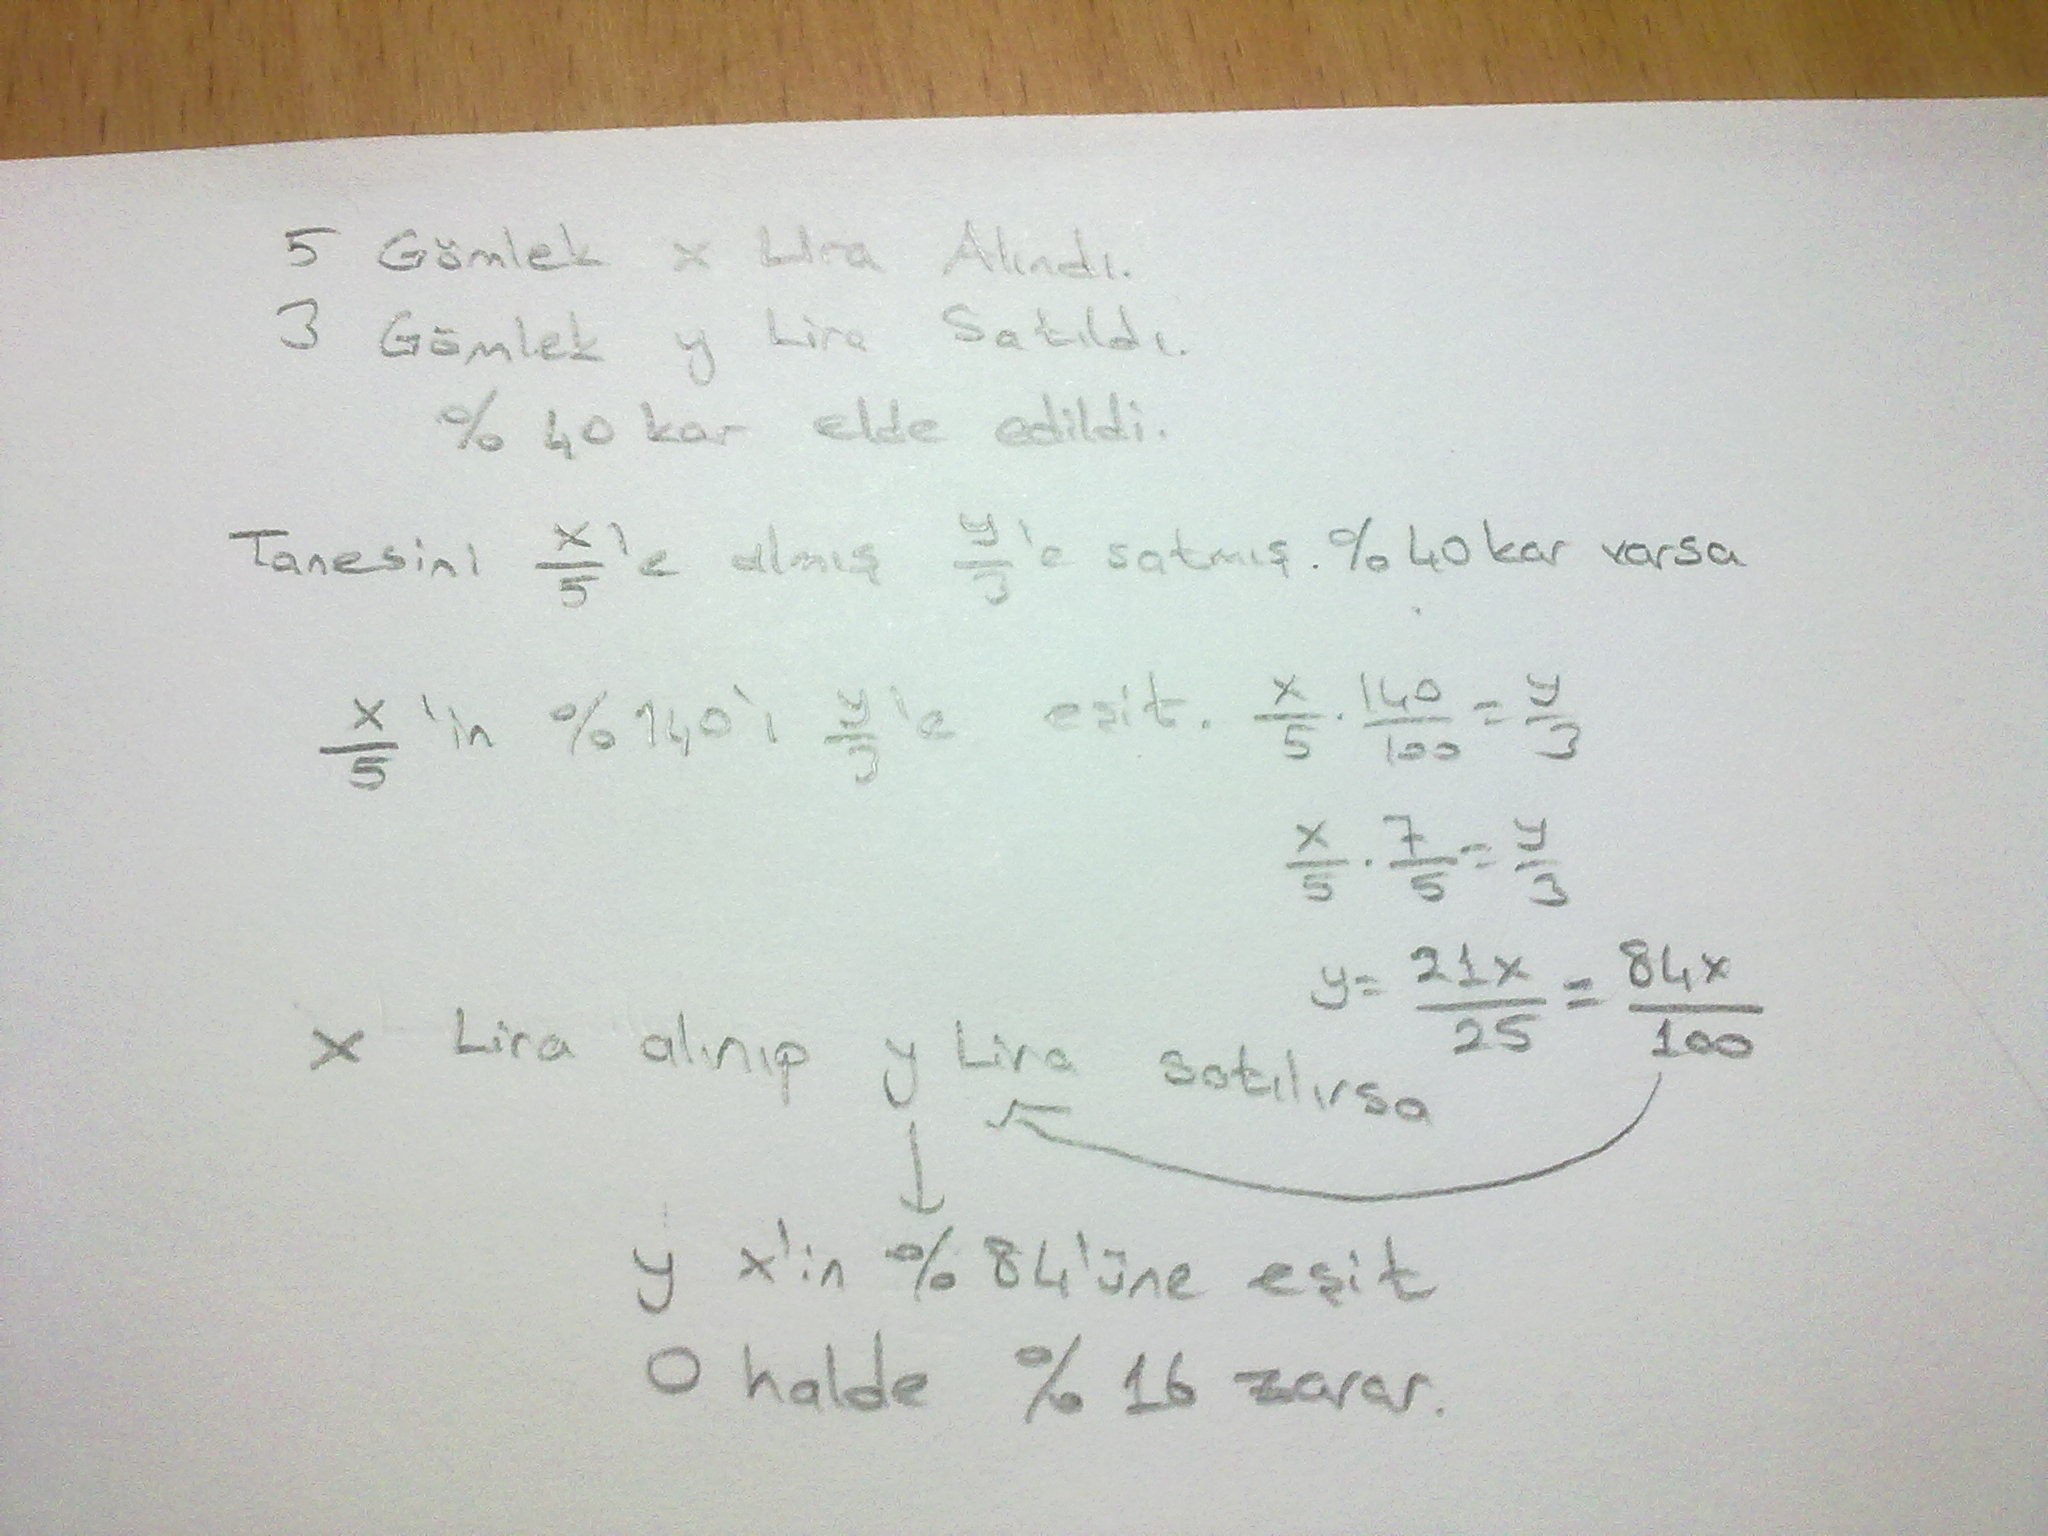 5 Gömlek x Lira Alındı.
3 Gömlek y Lira Satıldı.
% 40 kar elde edildi.
Tanesini x/5'e almış y/3'e satmış. % 40 kar varsa
x/5'in % 140'ı y/3'e eşit. x/5 . 140/100 = y/3
x/5 . 7/5 = y/3
y = 21x/25 = 84x/100
x Lira alınıp y Lira satılırsa
y x'in % 84'üne eşit
O halde % 16 zarar.